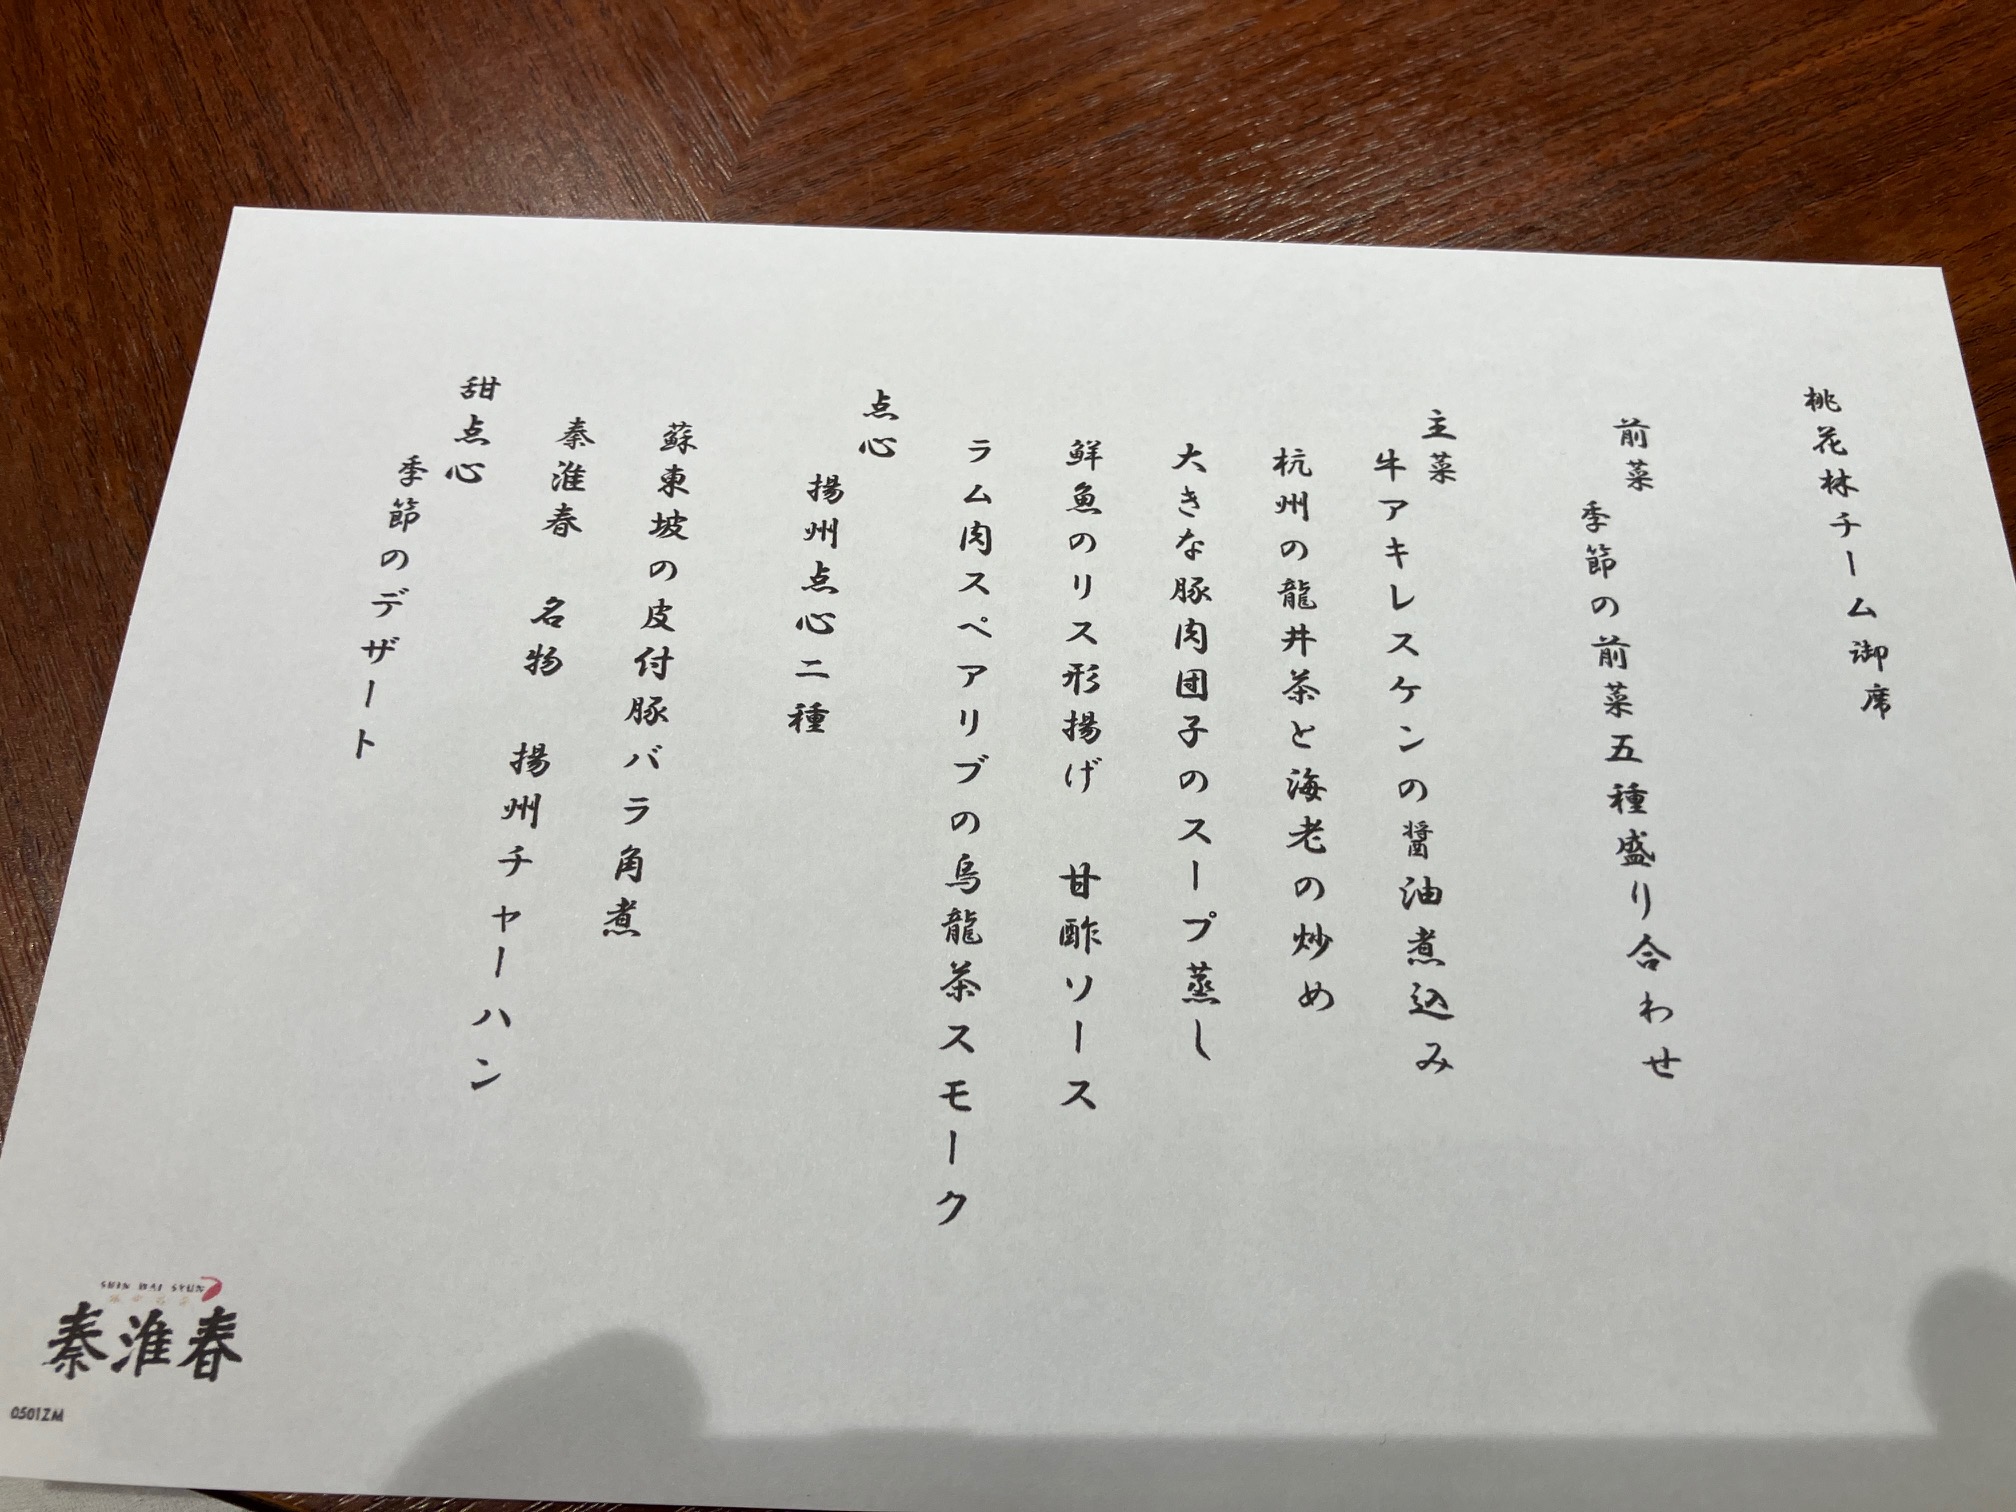 桃花林チーム御席
前菜
季節の前菜五種盛り合わせ
主菜
牛アキレスケンの醤油煮込み
杭州の龍井茶と海老の炒め
大きな豚肉団子のスープ蒸し
鮮魚のリス形揚げ 甘酢ソース
ラム肉スペアリブの烏龍茶スモーク
点心
揚州点心二種
蘇東坡の皮付豚バラ角煮
秦淮春 名物 揚州チャーハン
甜点心
季節のデザート
SHIN WAI SYUN
秦淮春
0501ZM